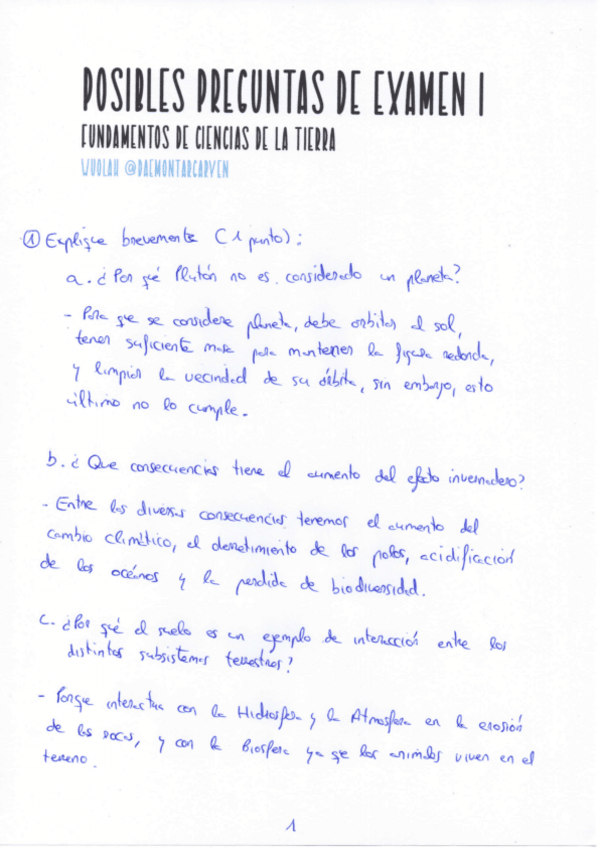 POSIBLES PREGUNTAS DE EXAMEN I
FUNDAMENTOS DE CIENCIAS DE LA TIERRA
WUOLAH @DAEMONTARGARYEN
① Explique brevemente (1 punto):
a. ¿Por qué Plutón no es considerado un planeta?
- Para que se considere planeta, debe orbitar al sol,
tener suficiente masa para mantener la figura redonda,
y limpiar la vecindad de su órbita, sin embargo, esto
último no lo cumple.
b. ¿Que consecuencias tiene el aumento del efecto invernadero?
- Entre las diversas consecuencias tenemos el aumento del
cambio climático, el derretimiento de los polos, acidificación
de los océanos y la perdida de biodiversidad.
c. ¿Por qué el suelo es un ejemplo de interacción entre los
distintos subsistemas terrestres?
- Porque interactua con la Hidrosfera y la Atmosfera en la erosión
de las rocas, y con la Biosfera ya que los animales viven en el
terreno.
1